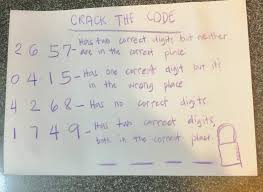 CRACK THE CODE
2657- Has two correct digits but neither
are in the correct place
0415- Has one correct digit but it's
in the wrong place
4268- Has no correct digits
1749- Has two correct digits,
both in the correct place